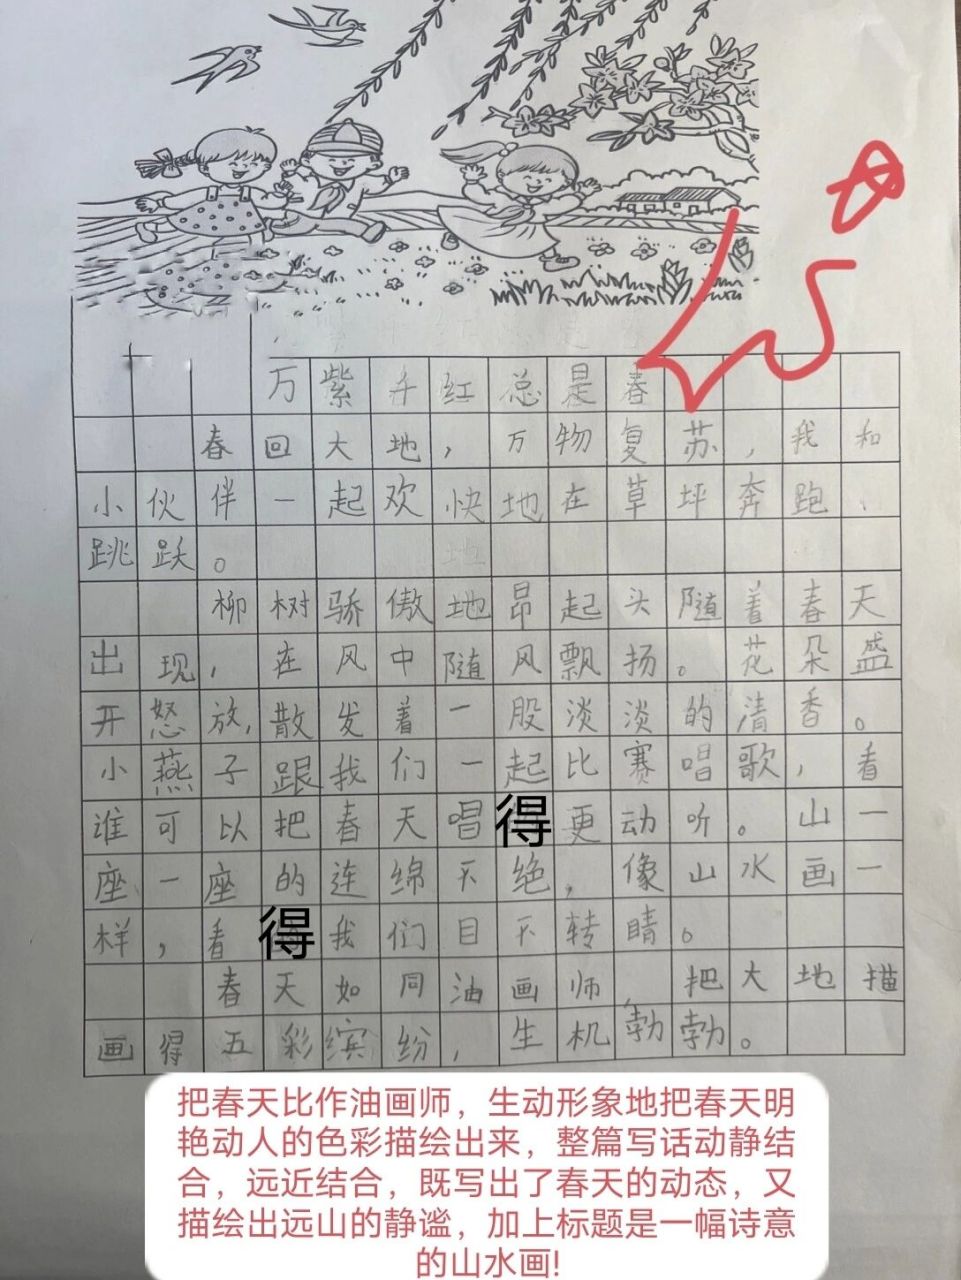 万紫千红总是春
春回大地，万物复苏，我和
小伙伴一起欢快地在草坪奔跑、
跳跃。
柳树骄傲地昂起头随着春天
出现，在风中随风飘扬。花朵盛
开怒放，散发着一股淡淡的清香。
小燕子跟我们一起比赛唱歌，看
谁可以把春天唱得更动听。山一
座一座的连绵不绝，像山水画一
样，看得我们目不转睛。
春天如同油画师，把大地描
画得五彩缤纷，生机勃勃。
把春天比作油画师，生动形象地把春天明
艳动人的色彩描绘出来，整篇写话动静结
合，远近结合，既写出了春天的动态，又
描绘出远山的静谧，加上标题是一幅诗意
的山水画!